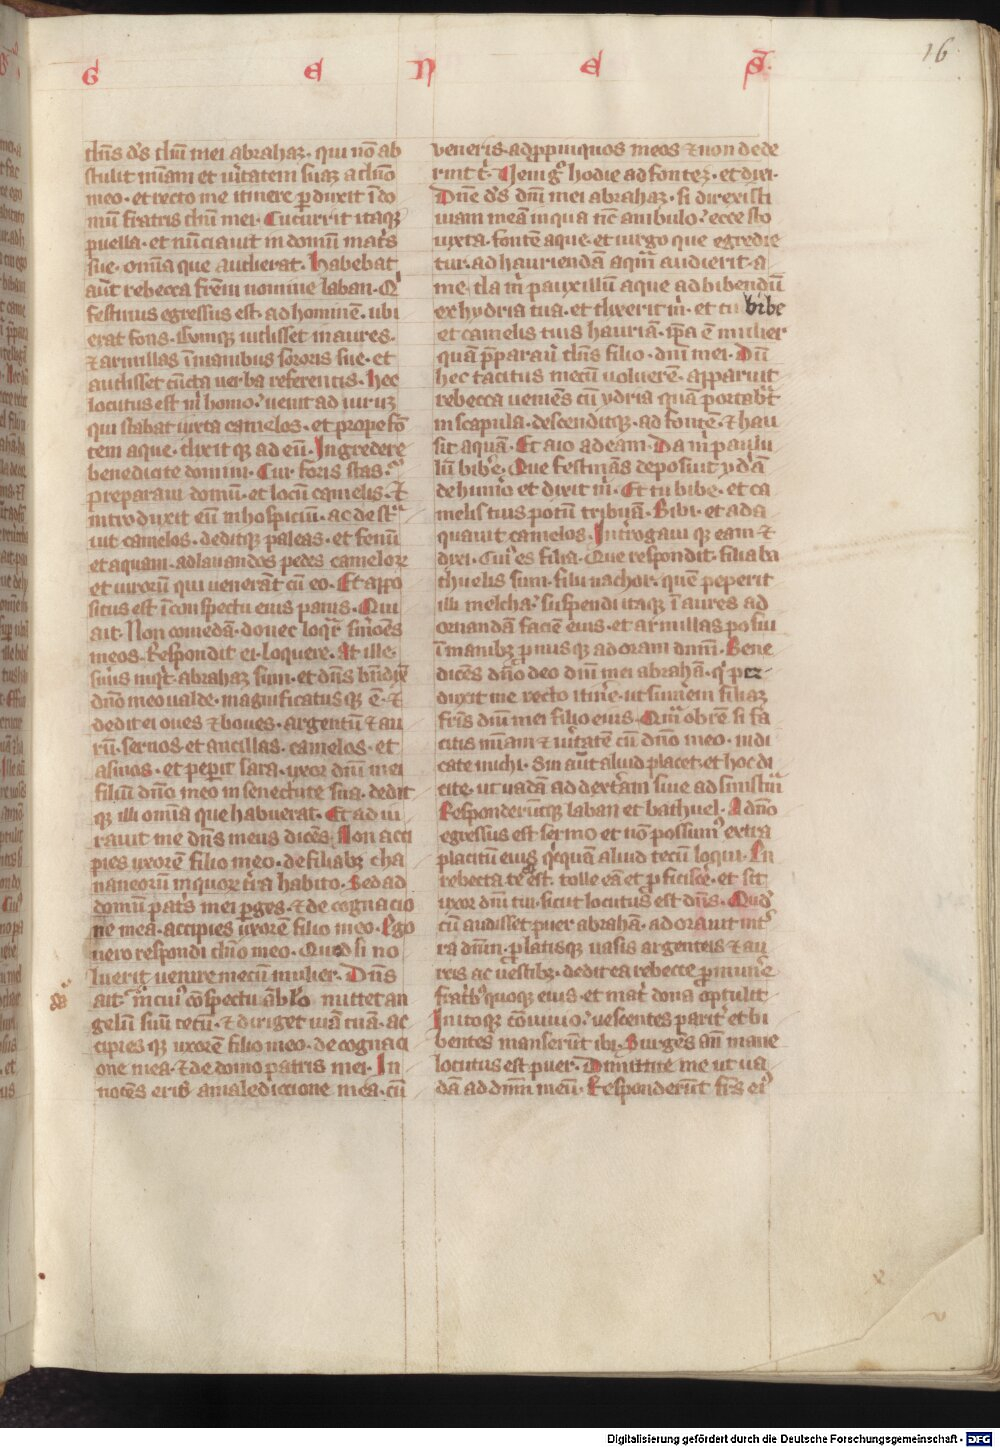 G E N E S̄.
16
dn̄s d's dn̄i mei abrahaꝫ. qui nō ab
stulit mīam et ūitatem suaꝫ a dn̄o
meo. et recto me itinere ꝑduxit ī do
mū fratris dn̄i mei. Cucurrit itaqꝫ
puella. et nūciauit in domū mat͛s
sue. omīa que audierat. Habebat
aūt rebecca frēm nomine laban. Qͥ
festinus egressus est. ad hominē. ubi
erat fons. Cumqꝫ uidisset inaures.
⁊ armillas ī manibus sororis sue. et
audisset cūcta uerba referentis. Hec
locutus est m̄ homo. uenit ad uiruꝫ
qui stabat iuxta camelos. et prope fō
tem aque. dixit qꝫ ad eū. Ingredere
benedicte domini. Cur foris stas.
preparaui domū. et locū camelis. ⁊
introduxit eū in hospiciū. ac dest͛
uit camelos. deditqꝫ paleas. et fenū
et aquam. ad lauandos pedes cameloꝝ
et uirorū qui uenerāt cū eo. Et appo
situs est ī conspectu eius panis. Qui
ait. Non comedā. donec loq͛r sm̄ōes
meos. Respondit ei. loquere. At ille.
suus inq͛t abrahaꝫ sum. et dn̄s bn̄dix͛
dn̄o meo ualde. magnificatus qꝫ ē. ⁊
dedit ei oues ⁊ boues. argentū ⁊ au
rū. seruos. et ancillas. camelos. et
asinos. et peꝑit sara. uxor dn̄i mei
filiū dn̄o meo in senectute sua. dedit
qꝫ illi omīa que habuerat. Et adiu
rauit me dn̄s meus dicēs. Non acci
pies uxorē filio meo. de filiabꝫ cha
naneorū in quorꝫ t͛ra habito. Sed ad
domū pat͛s mei ꝑges. ⁊ de cognacio
ne mea. accipies uxorē filio meo. Ego
uero respondi dn̄o meo. Quod si no
luerit uenire mecū mulier. Dn̄s
ait. in cui᷒ ꝯspectu āblo mittet an
gelū suū tecū. ⁊ diriget uiā tuā. ac
cipies qꝫ uxorē filio meo. de cognaci
one mea. ⁊ de domo patris mei. In
nocēs eris a maledictione mea. cū
veneris. ad ꝓpinquos meos ⁊ non dede
rint t͛. Ueni g͛ hodie ad fonteꝫ. et dixi.
Dn̄e d's dn̄i mei abrahaꝫ. si direxisti
uiam meā in qua nc̄ ambulo. ecce sto
iuxta. fontē aque. et uirgo que egredie
tur. ad hauriendā aq̄m audierit. a
me. da m̄ pauxillū aque ad bibendū
ex hydria tua. et dixerit m̄. et tu bibe
et camelis tuis hauriā. ip̄a ē mulier
quā p̄parauit dn̄s filio. dn̄i mei. Dū
hec tacitus mecū uoluerē. apparuit
rebecca ueniēs cū ydria quā portabat
in scapula. descenditqꝫ. ad fontē. ⁊ hau
sit aquā. Et aio ad eam. Da m̄ paulu
lū bib͛e. Que festinās deposuit ydᵃā
de hum͛o et dixit m̄. Et tu bibe. et ca
melis tuis potū tribuā. Bibi. et ada
quauit camelos. Int͛rogaui qꝫ eam ⁊
dixi. Cui᷒ es filia. Que respondit. filia ba
thuelis sum. filii nachor. quē peperit
illi melcha. suspendi itaqꝫ ī aures ad
ornandā faciē eius. et armillas posui
ī manibꝫ. ꝓnusqꝫ adoraui dn̄m. Bene
dicēs dn̄o deo dn̄i mei abrahā. q͛ per
duxit me recto itin͛e. ut sum͛em filiaꝫ
fr̄is dn̄i mei filio eius. Qm̄ ob rē si fa
citis mīam ⁊ ūitatē cū dn̄o meo. indi
cate michi. Sin aūt aliud placet. et hoc di
cite. ut uadā ad dext͛am siue ad sinistrā
Responderūtqꝫ laban et bathuel. A dn̄o
egressus est sermo et nō possum᷒ extra
placitū eius q͛cquā aliud tecū loqui. En
rebecca te ē est. tolle eā et ꝓficisc͛e. et sit
uxor dn̄i tui. sicut locutus est dn̄s. Quod
cū audisset puer abrahā. adorauit int͛
ra dn̄m. platisqꝫ uasis argenteis ⁊ au
reis ac uestibꝫ. dedit ea rebecce ꝓ mun͛e
fratribꝫ quoqꝫ eius. et mat͛ dona optulit
Initoqꝫ cōuiuio. uescentes parit͛ et bi
bentes manserūt ibi. Surgēs aū mane
locutus est puer. Dimittite me ut ua
dā ad dn̄m meū. Responderūt fr̄s ei᷒
Digitalisierung gefördert durch die Deutsche Forschungsgemeinschaft - DFG